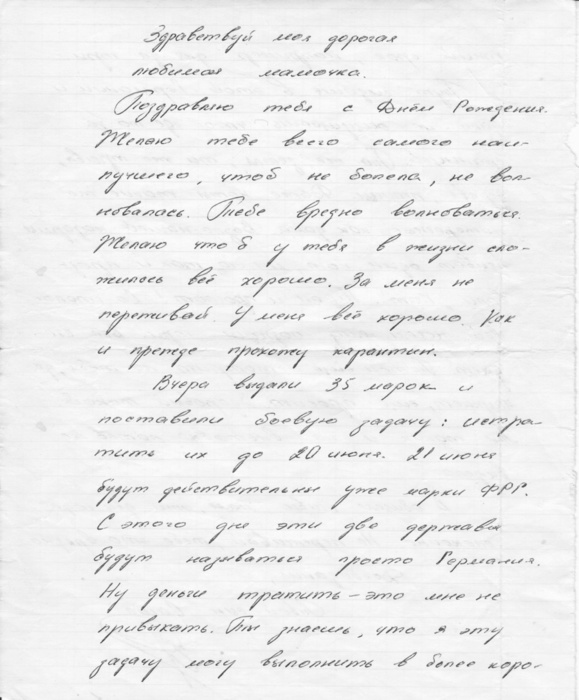 Здравствуй моя дорогая
любимая мамочка.
Поздравляю тебя с Днём Рождения.
Желаю тебе всего самого наи-
лучшего, чтоб не болела, не вол-
новалась. Тебе вредно волноваться.
Желаю чтоб у тебя в жизни сло-
жилось всё хорошо. За меня не
переживай. У меня всё хорошо. Как
и прежде прохожу карантин.
Вчера выдали 35 марок и
поставили боевую задачу: истра-
тить их до 20 июня. 21 июня
будут действительны уже марки ФРГ.
С этого дня эти две державы
будут называться просто Германия.
Ну деньги тратить – это мне не
привыкать. Ты знаешь, что я эту
задачу могу выполнить в более коро-